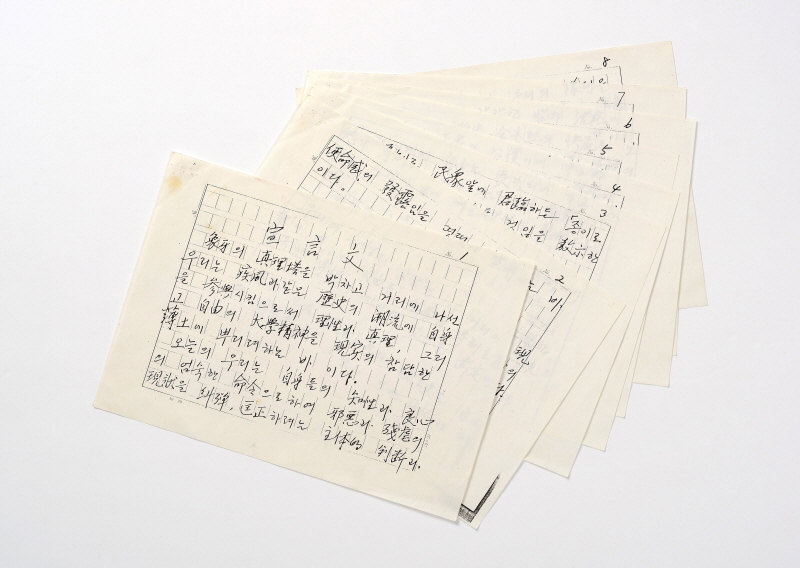 8
7
6
5
4
3
民衆앞에 君臨하는 「종이로
것임을 敎示한
使命感의 發露임을
이다.
2
는 바
現
의
1
宣言文
象牙의 眞理塔을 박차고 거리에 나선
우리는 疾風과같은 歷史의 潮流에 自身
을 參與시킴으로써 理性과 眞理, 그리
고 自由의 大學精神을 現實의 참담한
薄土에 뿌리려하는 바 이다.
오늘의 우리는 自身들의 知性과 良心
의 엄숙한 命令으로 하여 邪惡과 殘虐의
現狀을 糾彈, 匡正하려는 主體的 判斷과